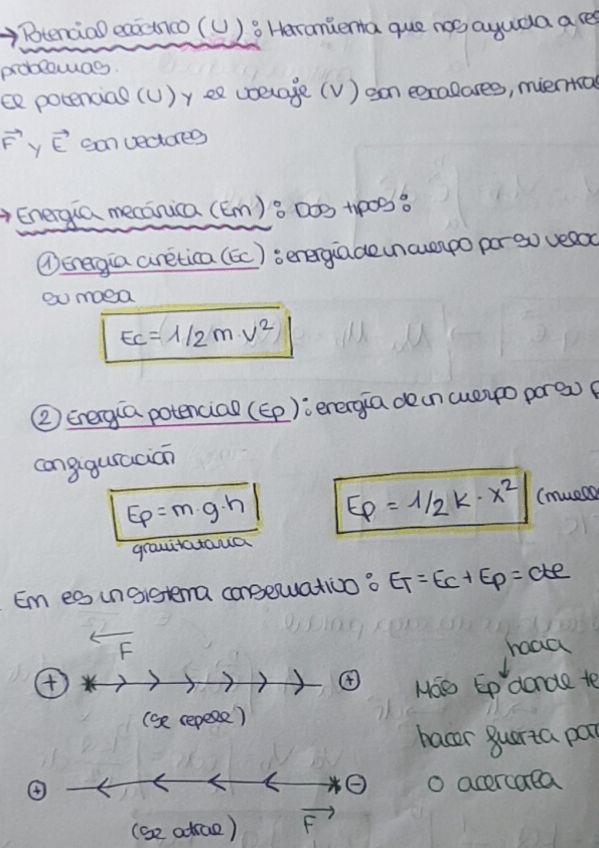 → Potencial eléctrico (U) : Herramienta que nos ayuda a res
problemas.
El potencial (U) y el voltaje (V) son escalares, mientras
F⃗ y E⃗ son vectores
→ Energía mecánica (Em) : Dos tipos :
① Energía cinética (Ec) : energía de un cuerpo por su veloc
su masa
Ec = 1/2 m · v²
② Energía potencial (Ep) : energía de un cuerpo por su p
configuración
Ep = m · g · h
Ep = 1/2 K · x² (muelle
gravitatoria
Em es un sistema conservativo : ET = Ec + Ep = cte
F
hacia
+ + Más Ep donde te
(se repele) hacer fuerza par
+ - o acercarla
(se atrae) F